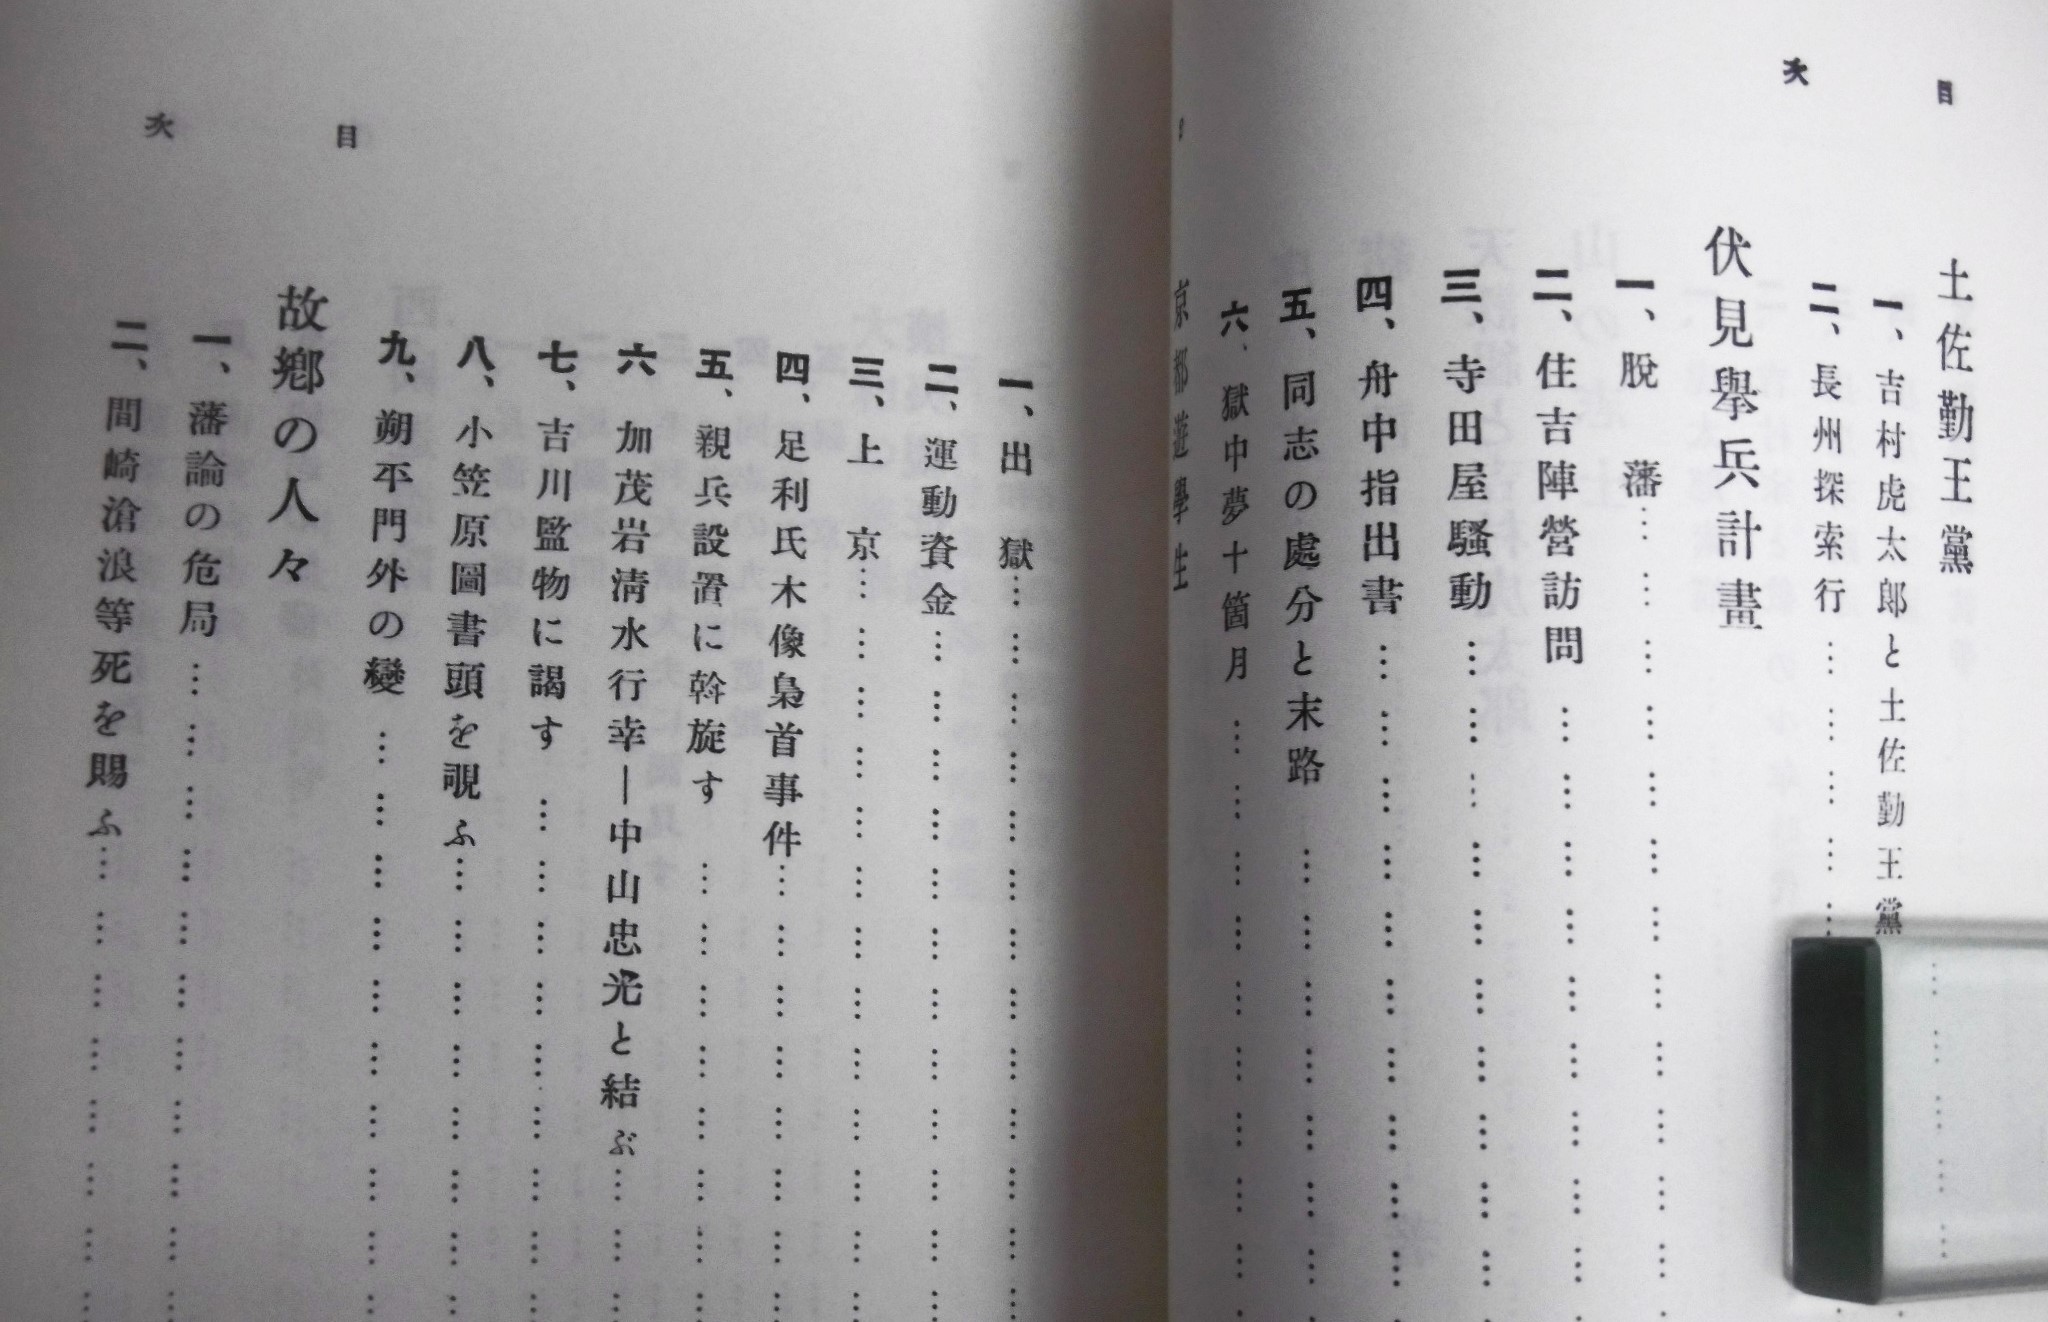 目次
土佐勤王黨
一、吉村虎太郎と土佐勤王黨
二、長州探索行……………
伏見擧兵計畫
一、脫藩……………………………………
二、住吉陣營訪問…………………………
三、寺田屋騷動……………………………
四、舟中指出書……………………………
五、同志の處分と末路……………………
六、獄中夢十箇月…………………………
京都遊學生
目次
一、出獄……………………………………
二、運動資金………………………………
三、上京……………………………………
四、足利氏木像梟首事件…………………
五、親兵設置に斡旋す……………………
六 加茂岩淸水行幸―中山忠光と結ぶ……
七、吉川監物に謁す………………………
八、小笠原圖書頭を覗ふ…………………
九、朔平門外の變…………………………
故鄕の人々
一、藩論の危局……………………………
二、間崎滄浪等死を賜ふ…………………